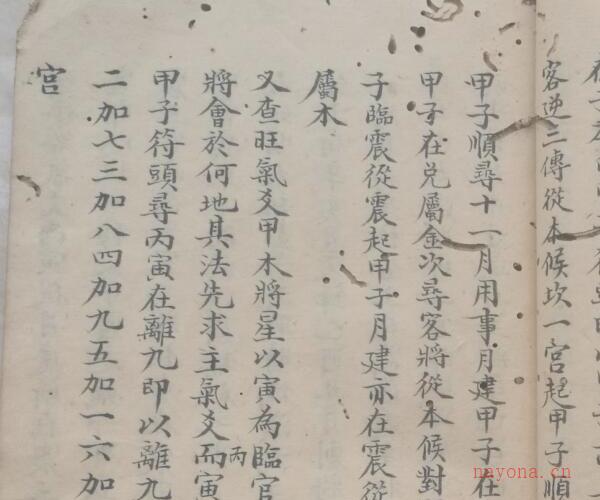 客逆三傳從本候坎一宮起甲子順
甲子順尋十一月用事月建甲子在
甲子在兌屬金次尋客將從本候對
子臨震從震起甲子月建亦在震從
屬木
又查旺氣爻甲木將星以寅為臨官
將會於何地其法先求主氣爻而丙寅
甲子符頭尋丙寅在離九即以離九
二加七三加八四加九五加一六加
宮
nayona.cn